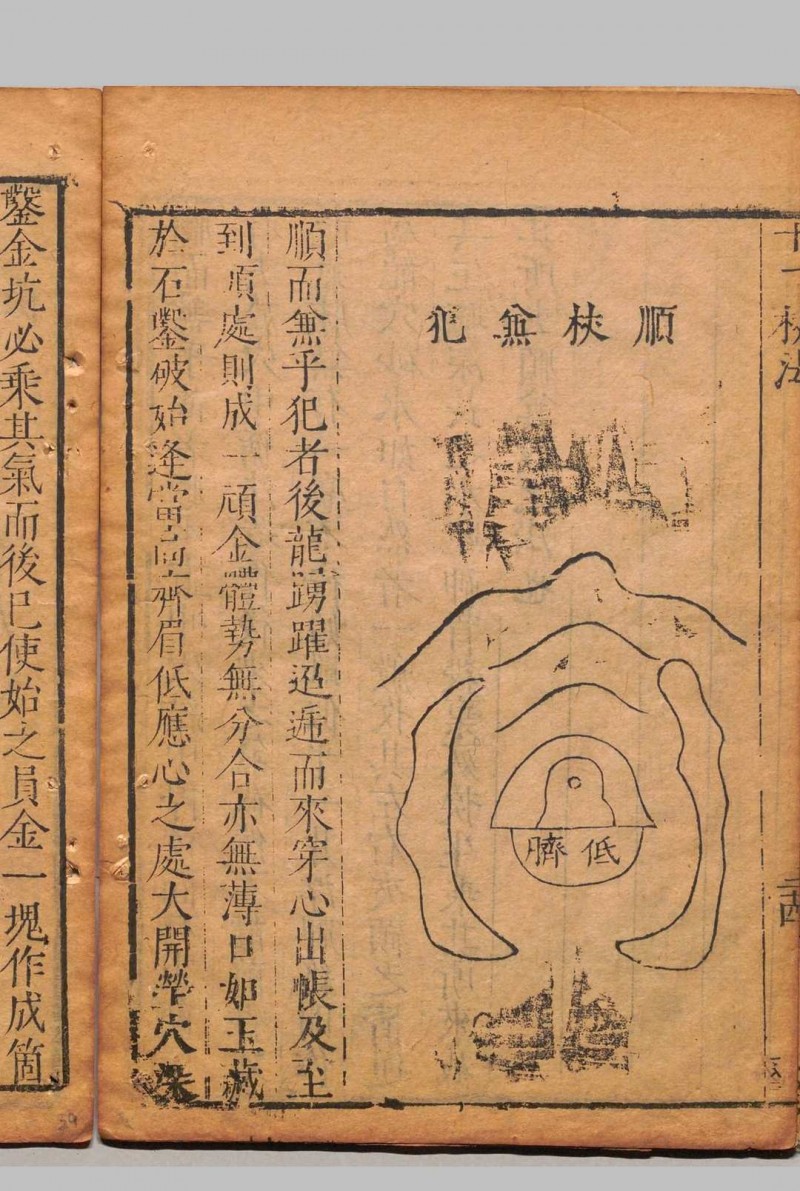 十二杖法
順杖無犯
低臍
順而無乎犯者後龍踴躍迢遞而來穿心出帳及至
到頂處則成一頑金體勢無分合亦無薄口如玉藏
於石鑿破始逢當前齊眉低應心之處大開塋穴
鑿金坑必乘其氣而後已使始之員金一塊作成箇